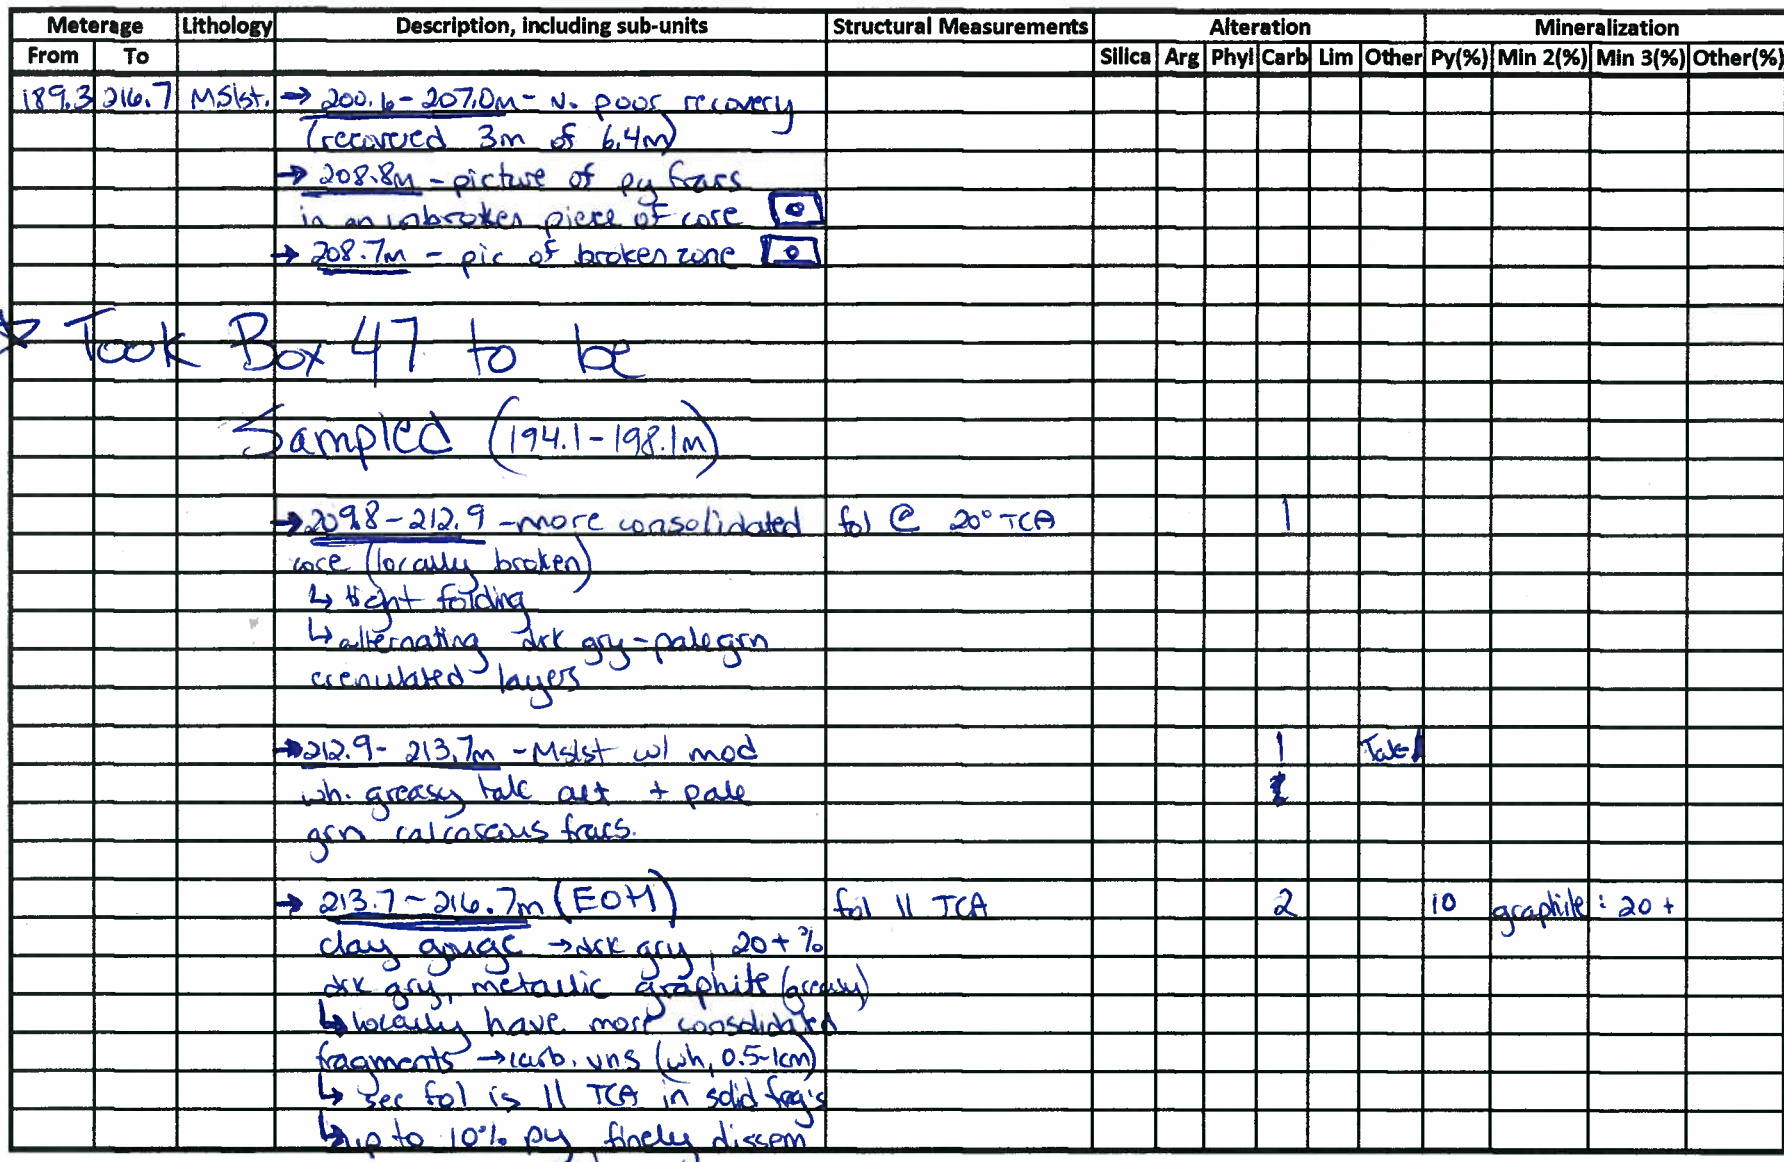 Meterage Lithology Description, including sub-units Structural Measurements Alteration Mineralization
From To Silica Arg Phyl Carb Lim Other Py(%) Min 2(%) Min 3(%) Other(%)
189.3 216.7 MSlst. → 200.6-207.0m - v. poor recovery
(recovered 3m of 6.4m)
→ 208.8m - picture of py fracs
in an unbroken piece of core
→ 208.7m - pic of broken zone
Took Box 47 to be
Sampled (194.1-198.1m)
→ 209.8-212.9 - more consolidated fol @ 20° TCA 1
core (locally broken)
↳ tight folding
↳ alternating drk gry-pale grn
crenulated layers
→ 212.9-213.7m - Mslst w/ mod 1 Talc 1
wh. greasy talc alt + pale
grn calcareous fracs.
→ 213.7-216.7m (EOH) fol || TCA 2 10 graphite: 20+
clay gouge → drk gry, 20+%
drk gry, metallic graphite (greasy)
↳ locally have more consolidated
fragments → carb. vns (wh, 0.5-1cm)
↳ see fol is || TCA in solid frag's
↳ up to 10% py, finely dissem